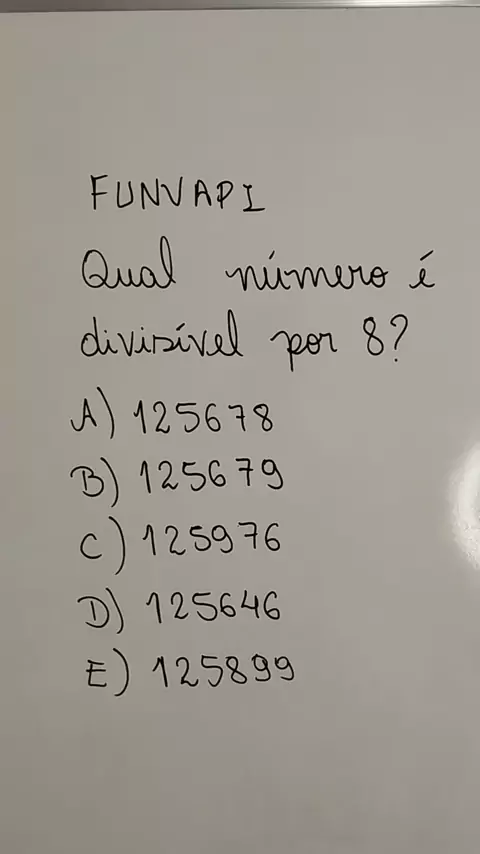 FUNVAPI
Qual número é
divisível por 8?
A) 125678
B) 125679
C) 125976
D) 125646
E) 125899